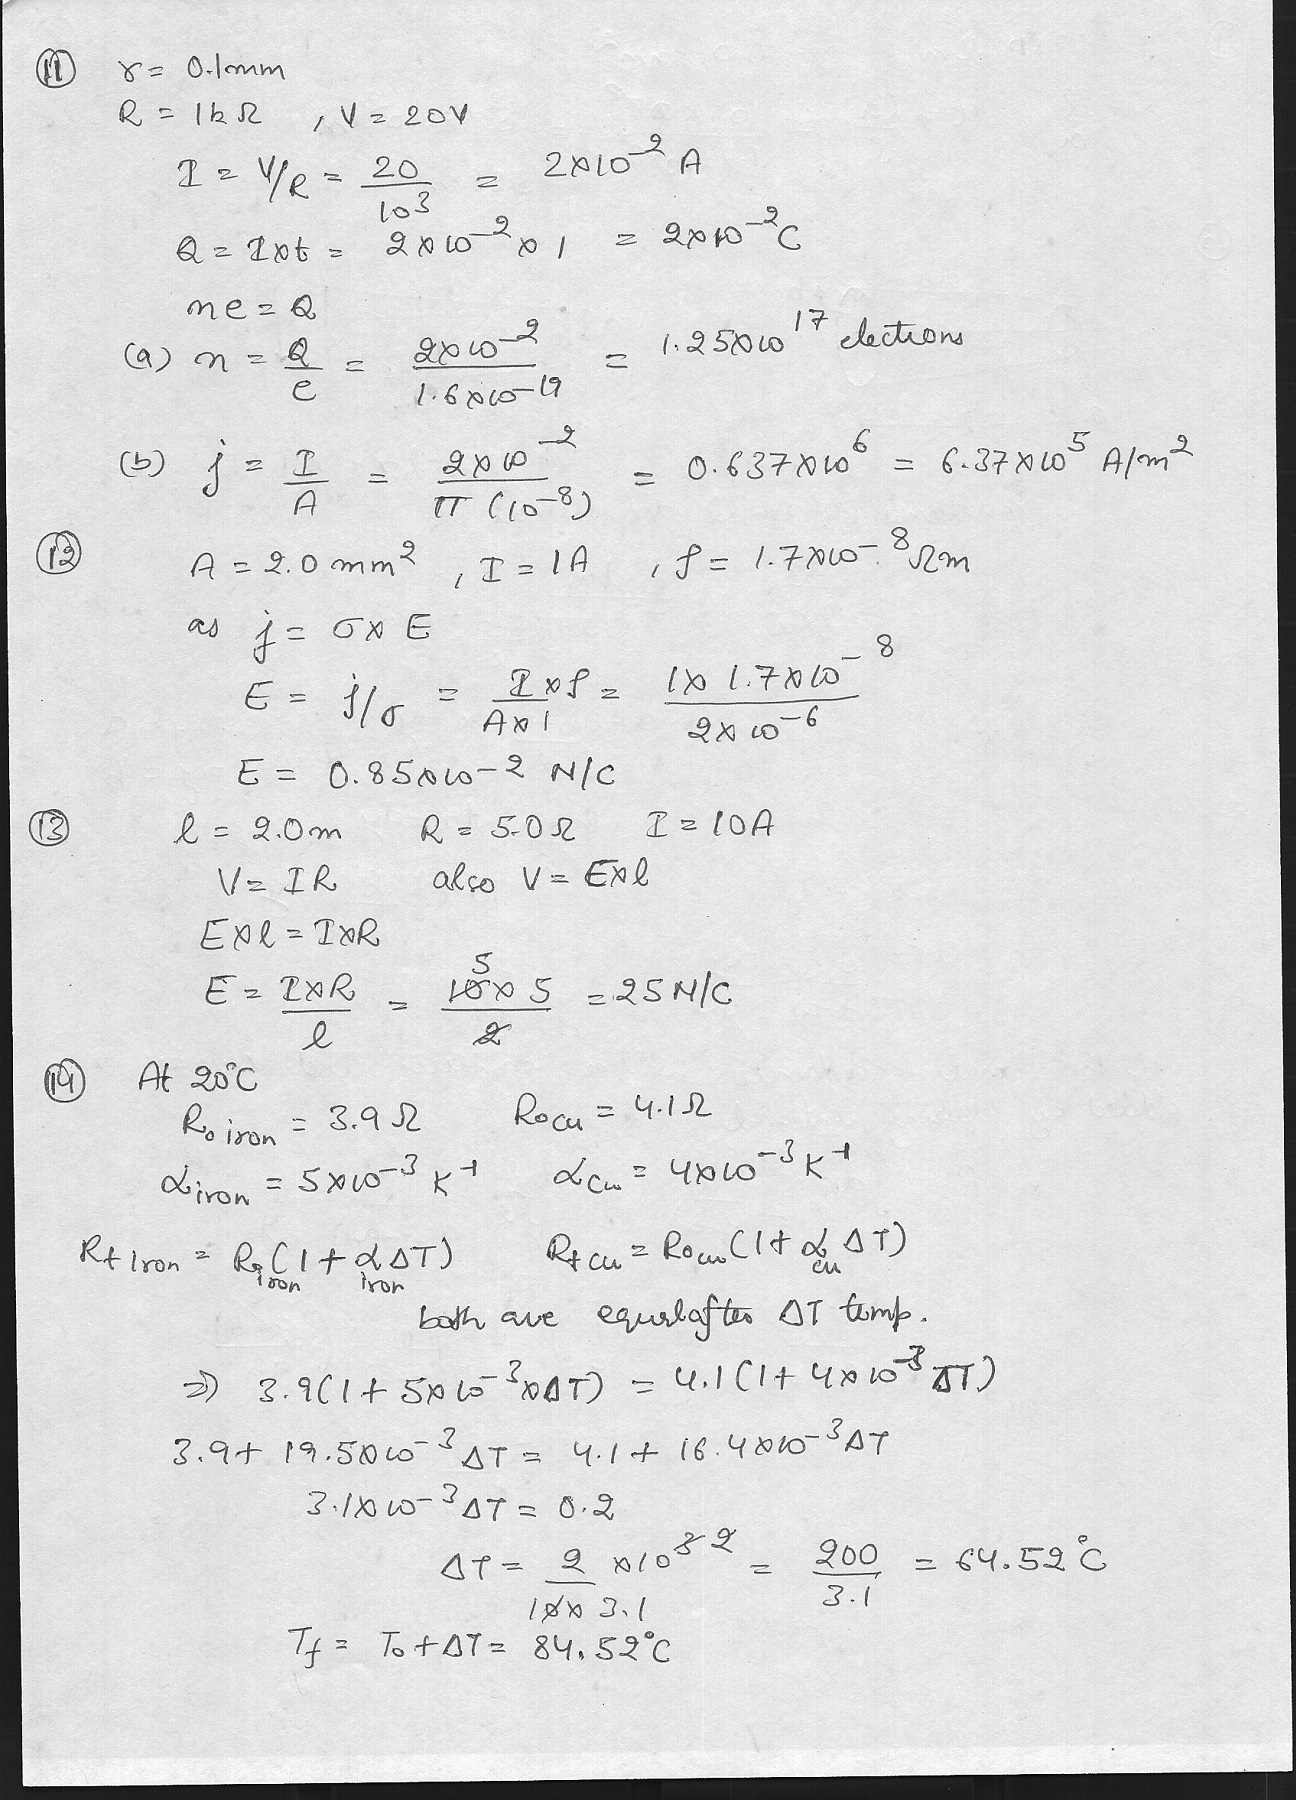 (11) r = 0.1mm
R = 1kΩ , V = 20V
I = V/R = 20/10³ = 2×10⁻² A
Q = I×t = 2×10⁻²×1 = 2×10⁻²C
ne = Q
(a) n = Q/e = 2×10⁻²/1.6×10⁻¹⁹ = 1.25×10¹⁷ electrons
(b) j = I/A = 2×10⁻²/π(10⁻⁸) = 0.637×10⁶ = 6.37×10⁵ A/m²
(12) A = 2.0mm² , I = 1A , ρ = 1.7×10⁻⁸Ωm
as j = σ×E
E = j/σ = I×ρ/A×1 = 1×1.7×10⁻⁸/2×10⁻⁶
E = 0.85×10⁻² N/C
(13) l = 2.0m R = 5.0Ω I = 10A
V = IR also V = E×l
E×l = I×R
E = I×R/l = 10×5/2 = 25N/C
(14) At 20°C
R₀ iron = 3.9Ω R₀cu = 4.1Ω
α iron = 5×10⁻³ K⁻¹ αcu = 4×10⁻³K⁻¹
Rt iron = R₀ iron(1+α iron ΔT) Rt cu = R₀cu(1+α cu ΔT)
both are equal after ΔT temp.
⇒ 3.9(1+5×10⁻³×ΔT) = 4.1(1+4×10⁻³ΔT)
3.9+19.5×10⁻³ΔT = 4.1+16.4×10⁻³ΔT
3.1×10⁻³ΔT = 0.2
ΔT = 2/10×3.1 ×10³ ² = 200/3.1 = 64.52°C
Tf = T₀+ΔT = 84.52°C